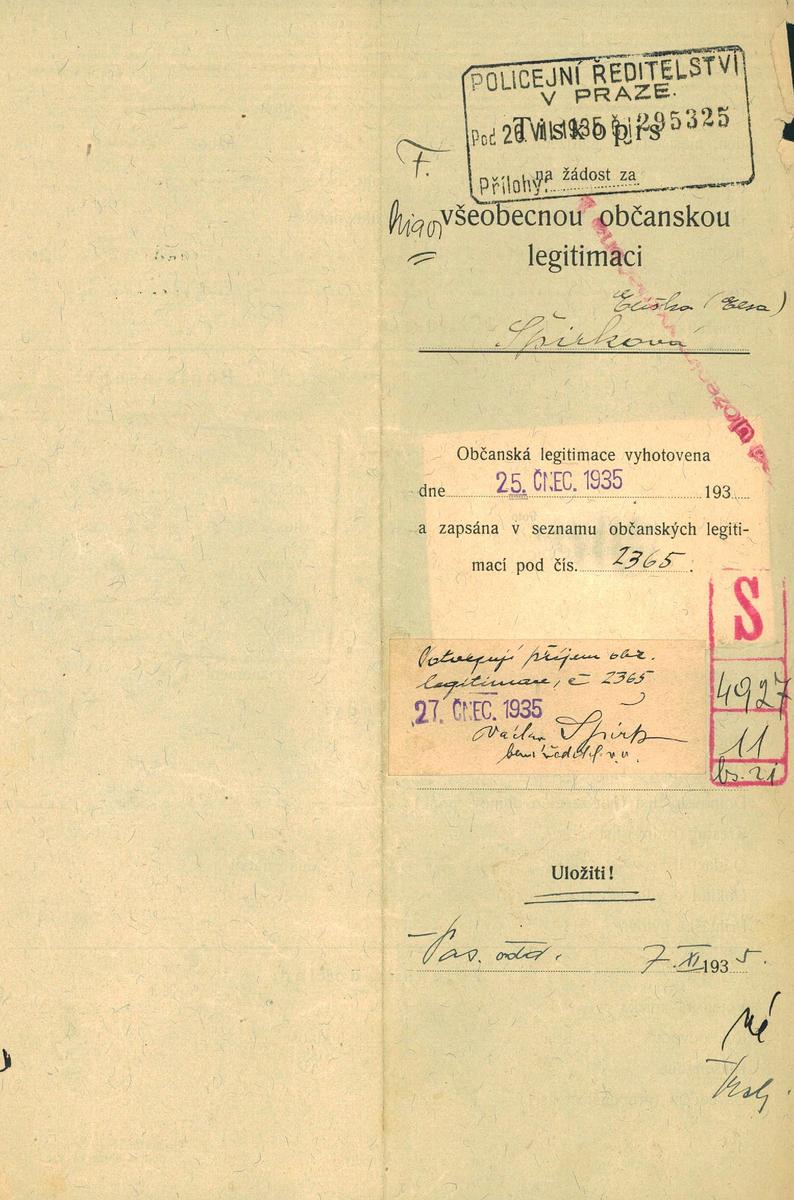 POLICEJNÍ ŘEDITELSTVÍ
V PRAZE.
Tiskopis
Pod 26. VII. 1935 č. j. 295325
na žádost za
Přílohy:
F.
všeobecnou občanskou
legitimaci
Eliška (Elsa)
Špirková
Občanská legitimace vyhotovena
dne 25. ČNEC. 1935 193
a zapsána v seznamu občanských legiti-
mací pod čís. 2365.
S
Potvrzuji příjem obč.
legitimace, č 2365
27. ČNEC. 1935
Václav Špirk
4927
11
Uložiti!
Pas. odd. 7. XI 1935.